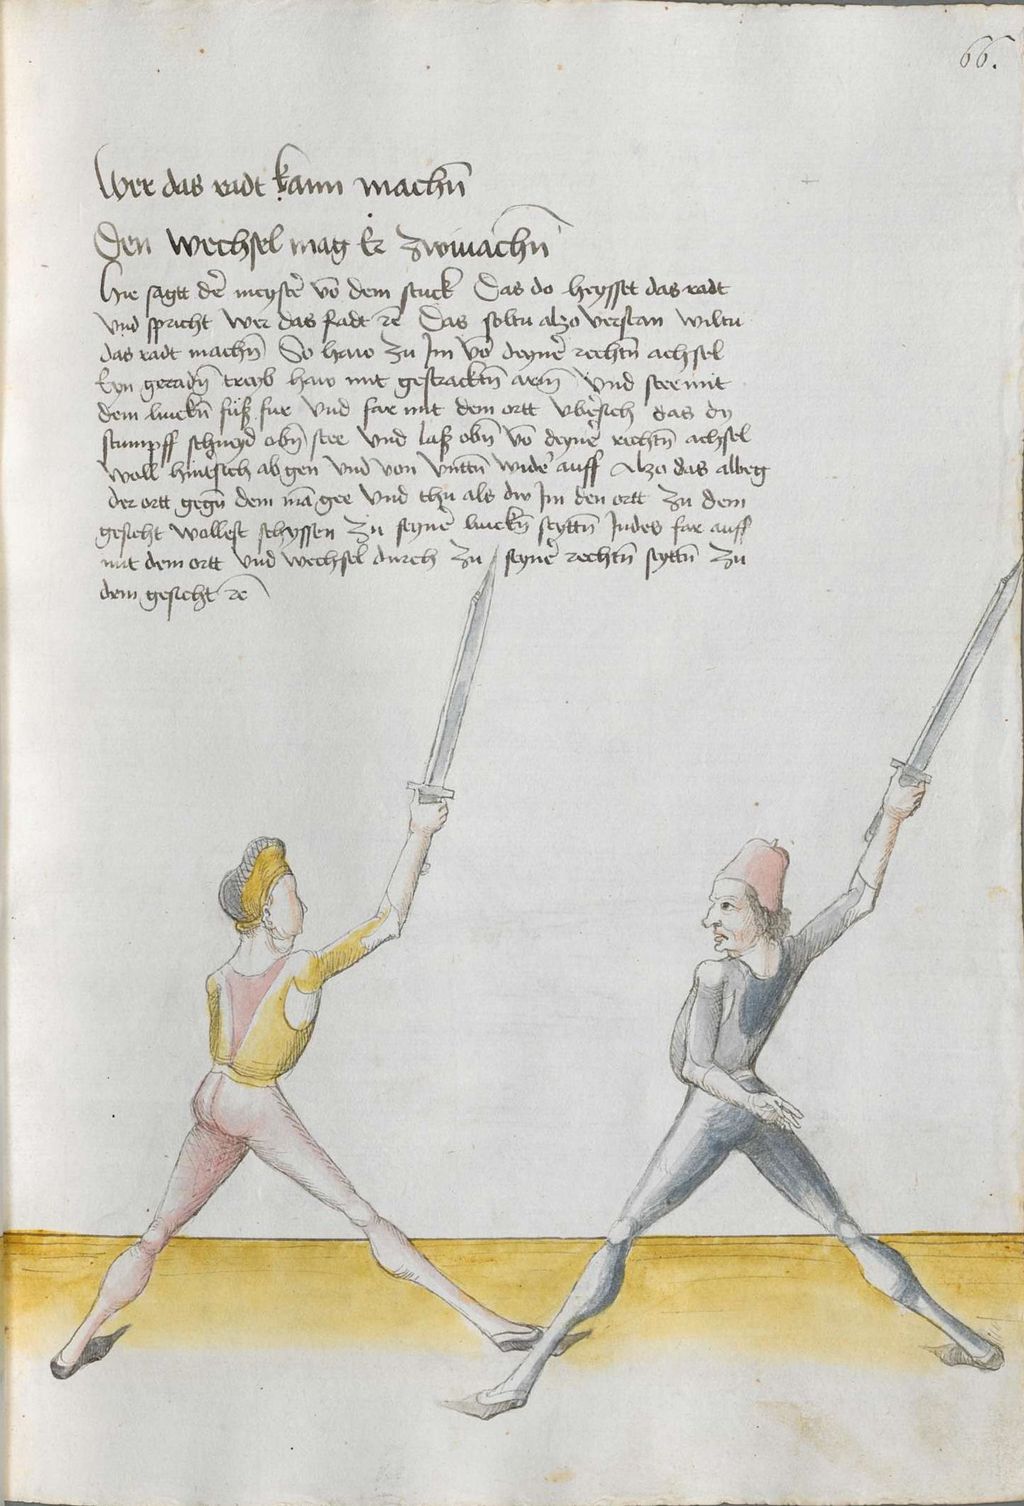 66.
Wer das radt kann machn̄
Den wechsel mag Er zwmachn̄
Hie sagtt de͂ meyste͂ vō dem stuck Das do heysset das radt
vnd spricht wer das Radt rc̄ Das soltu alzo verstan wiltu
das radt machn̄ So haw zu Jm vō deyne͂ rechtn̄ achsel
Eyn geradn̄ treyb haw mit gestracktn̄ arm̄ vnd stee mit
dem linckn̄ fuß fur vnd far mit dem ortt vbe͂sich das dy
stumpff schneyd obn̄ stee vnd laß obn̄ vō deyne͂ rechtn̄ achsel
woll hint͂sich ab gen vnd von vnttn̄ wide͂ auff Alzo das albeg
der ortt gegn̄ dem mā gee vnd thu als dw Jm den ortt zu dem
gesicht wollest schyssen zu seyne͂ linckn̄ seyttn̄ Jndes far auff
mit dem ortt vnd wechsel durch zu seyne͂ rechtn̄ seyttn̄ zu
dem gesicht rc̄